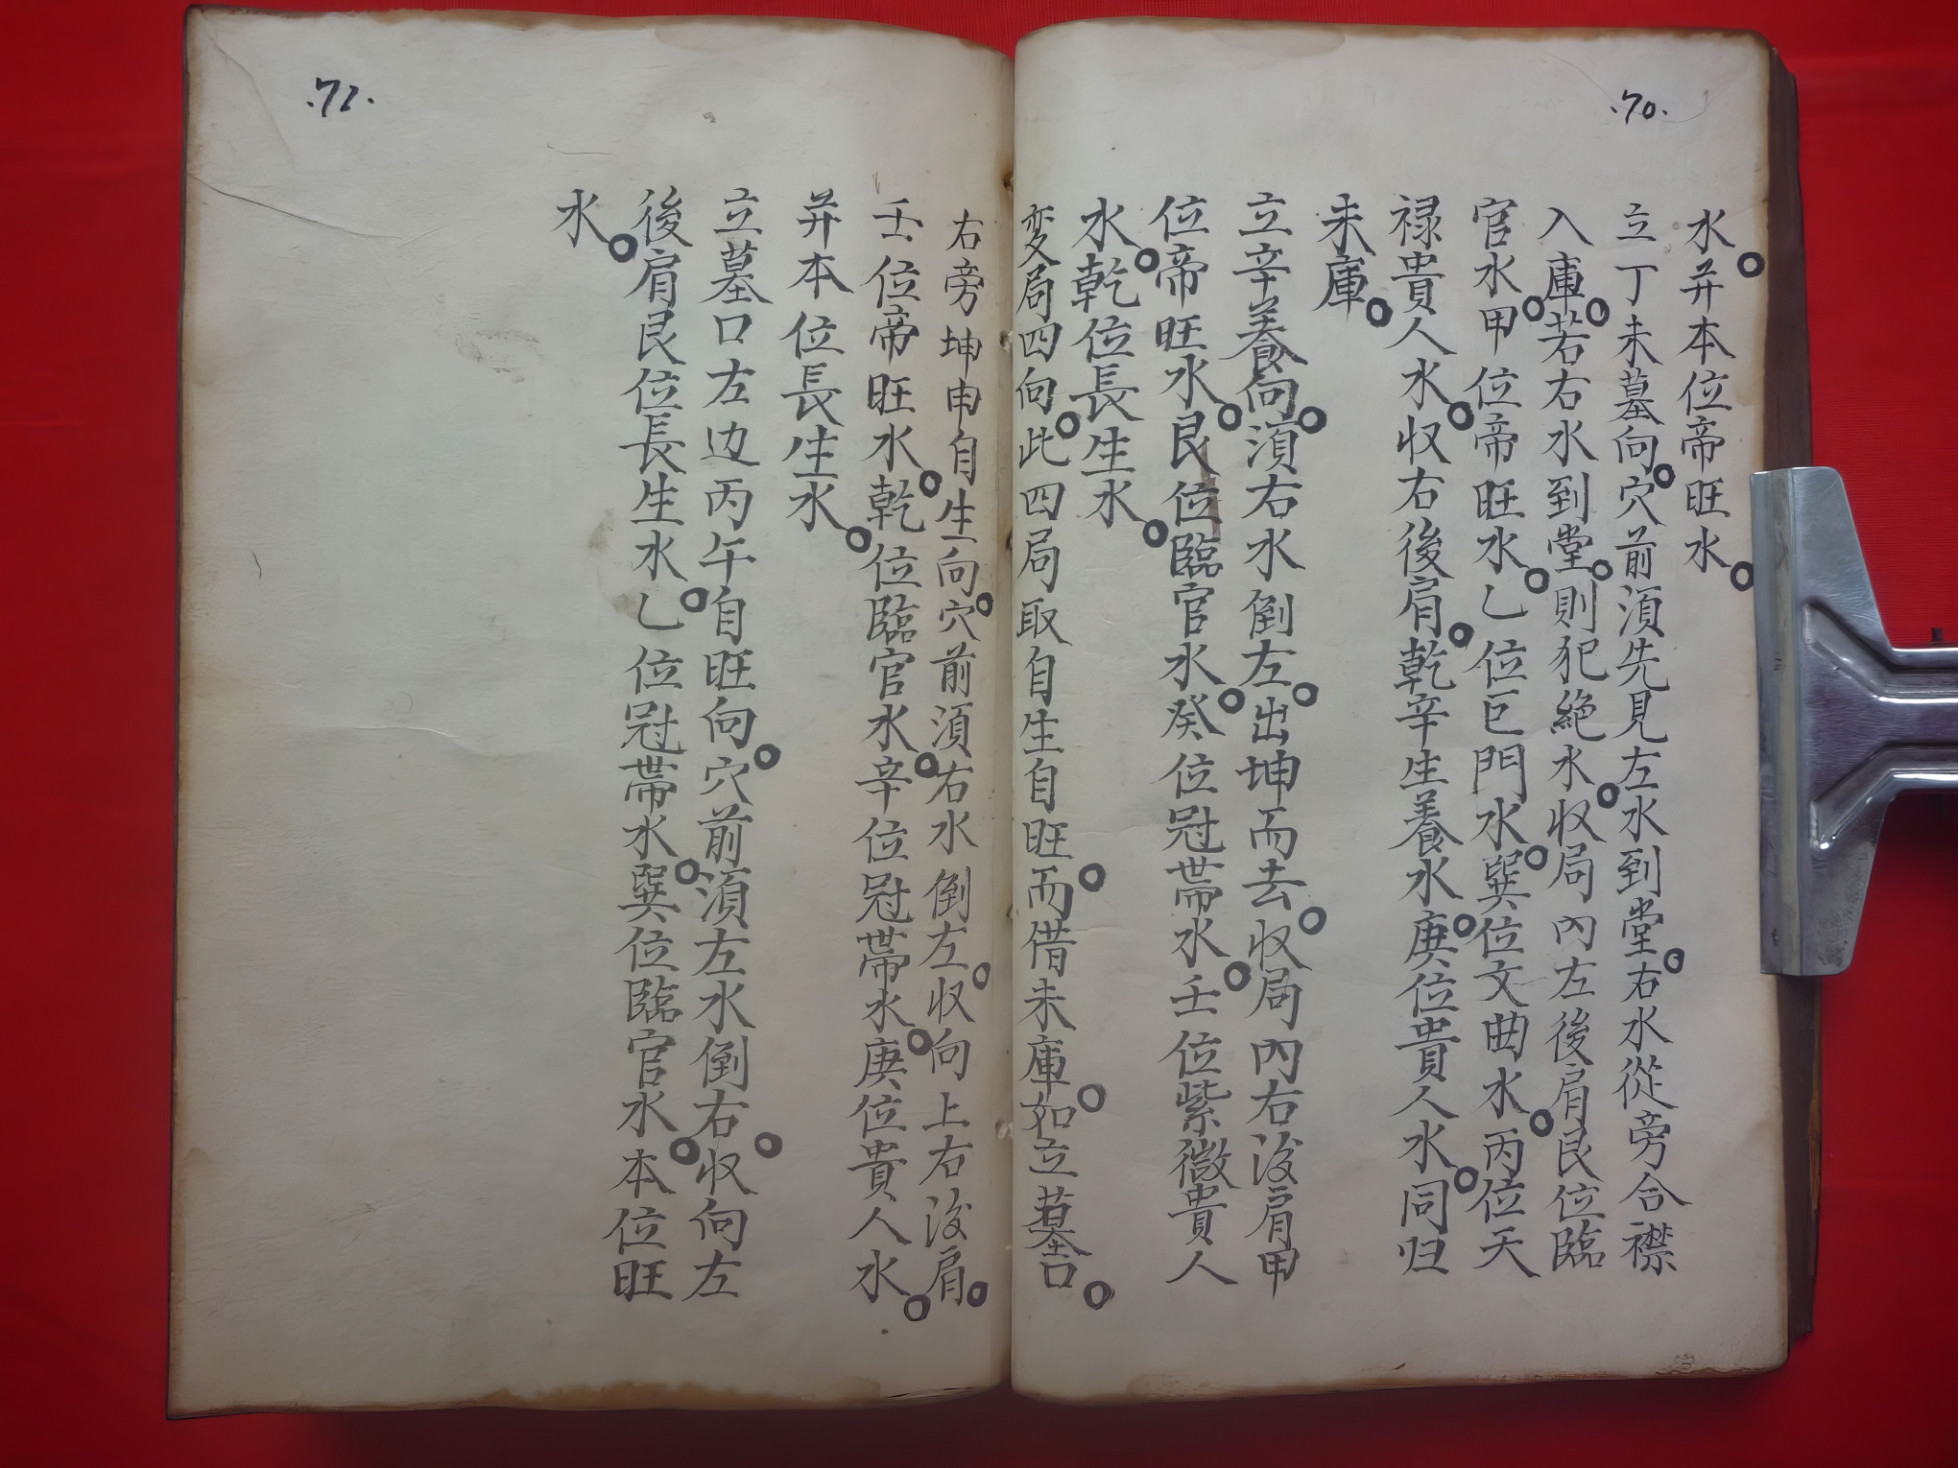 .70.
水。并本位帝旺水。
立丁未墓向。穴前湏先見左水到堂。右水從旁合襟
入庫。若右水到堂。則犯絕水。收局內左後肩艮位臨
官水。甲位帝旺水。乙位巨門水。巽位文曲水。丙位天
禄貴人水。收右後肩。乾辛生養水。庚位貴人水。同归
未庫。
立辛養向。湏右水倒左。出坤而去。收局內右後肩甲
位帝旺水。艮位臨官水。癸位冠帶水。壬位紫微貴人
水。乾位長生水。
変局四向。此四局取自生自旺。而借未庫。如立墓口。
.71.
右旁坤申自生向。穴前湏右水倒左。收向上右後肩。
壬位帝旺水。乾位臨官水。辛位冠帶水。庚位貴人水。
并本位長生水。
立墓口左边丙午自旺向。穴前湏左水倒右。收向左
後肩艮位長生水。乙位冠帶水。巽位臨官水。本位旺
水。